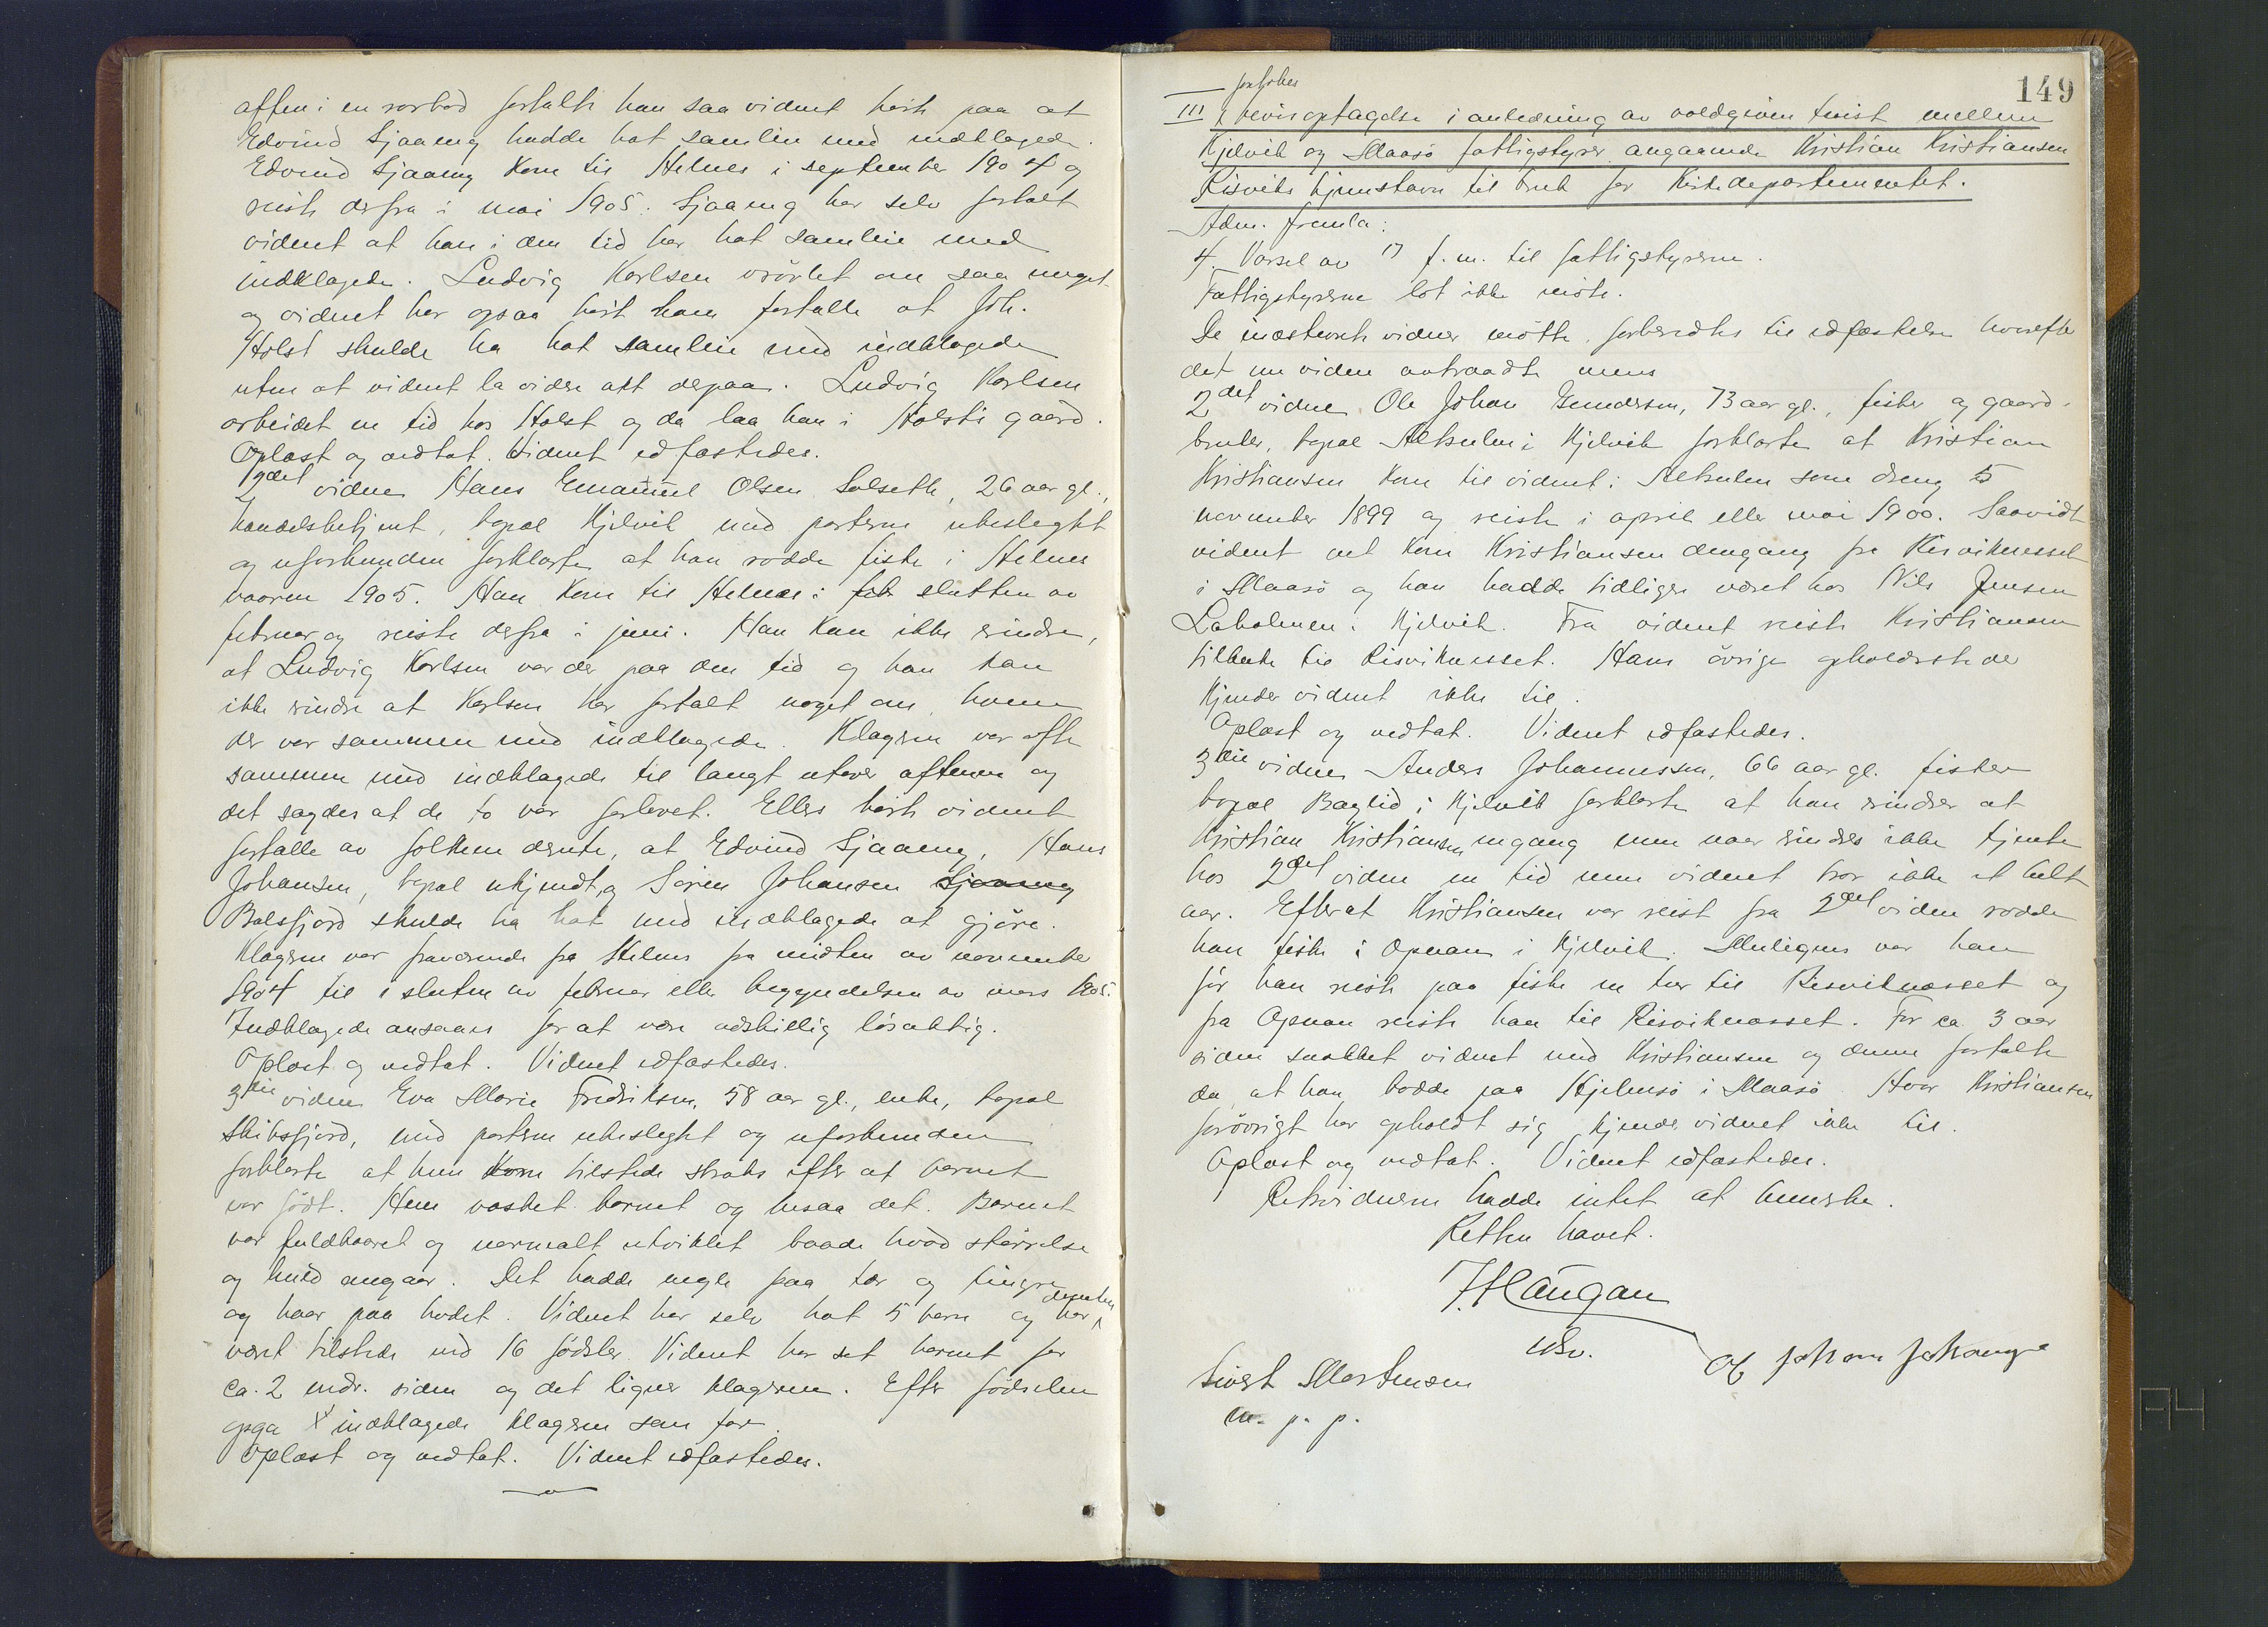 aften i en rorbod fortalte han saa vidnet hørte paa at
Edvind Sjaaeng hadde hat samleie med indklagede.
Edvind Sjaaeng kom til Helnes i september 1904 og
reiste derfra i mai 1905. Sjaaeng har selv fortalt
vidnet at han i den tid har hat samleie med
indklagede. Ludvig Karlsen vrøvlet om saa meget
og vidnet har ogsaa hørt ham fortælle at Joh.
Holst skulde ha hat samleie med indklagede
uten at vidnet la videre akt derpaa. Ludvig Karlsen
arbeidet en tid hos Holst og da laa han i Holsts gaard.
Oplæst og vedtat. Vidnet edfæstedes.
2det vidne Hans Emanuel Olsen Solseth, 26 aar gl.,
handelsbetjent, bopæl Kjelvik med parterne ubeslegtet
og uforbunden forklarte at han rodde fiske i Helnes
vaaren 1905. Han kom til Helnes i feb slutten av
februar og reiste derfra i juni. Han kan ikke erindre,
at Ludvig Karlsen var der paa den tid og han kan
ikke erindre at Karlsen har fortalt noget om hvem
der var sammen med indklagede. Klageren var ofte
sammen med indklagede til langt utover aftenen og
det sagdes at de to var forlovet. Ellers hørte vidnet
fortælle av folkene derute, at Edvind Sjaaeng, Hans
Johansen, bopæl ukjendt, og Søren Johansen Sjaaeng
Balsfjord skulde ha hat med indklagede at gjøre.
Klageren var fraværende fra Helnes fra midten av november
1904 til i slutten av februar eller begyndelsen av mars 1905.
Indklagede ansaaes for at være adskillig løsaktig.
Oplæst og vedtat. Vidnet edfæstedes.
3die vidne Eva Marie Fredriksen, 58 aar gl., enke, bopæl
Skibsfjord, med parterne ubeslegtet og uforbunden
forklarte at hun kom tilstede straks efter at barnet
var født. Hun vasket barnet og besaa det. Barnet
var fuldbaaret og normalt utviklet baade hvad størrelse
og huld angaar. Det hadde negle paa tær og fingre
og haar paa hodet. Vidnet har selv hat 5 barn og har desuten
været tilstede ved 16 fødsler. Vidnet har set barnet for
ca. 2 mdr. siden og det ligner klageren. Efter fødselen
opga indklagede klageren som far.
Oplæst og vedtat. Vidnet edfæstedes.
149
III bevisoptagelse i anledning av voldgiven tvist mellem
Kjelvik og Maasø fattigstyrer angaaende Kristian Kristiansen
Risviks hjemstavn til bruk for Kirkedepartementet.
Adm. fremla:
4. Varsel av 17 f.m. til fattigstyrerne.
Fattigstyrerne lot ikke møte.
De indstevnte vidner møtte, forberedtes til edfæstelse hvorefter
det ene vidne avtraadte mens
2det vidne Ole Johan Gundersen, 73 aar gl., fisker og gaard-
bruker, bopæl Altsulen i Kjelvik forklarte at Kristian
Kristiansen kom til vidnet i Altsulen som dreng 5
november 1899 og reiste i april eller mai 1900. Saavidt
vidnet vet kom Kristiansen dengang fra Risviknesset
i Maasø og han hadde tidligere været hos Nils Jensen
Laholmen i Kjelvik. Fra vidnet reiste Kristiansen
tilbake til Risviknesset. Hans øvrige opholdssteder
kjender vidnet ikke til.
Oplæst og vedtat. Vidnet edfæstedes.
3die vidne Anders Johannessen, 66 aar gl. fisker
bopæl Baglid i Kjelvik forklarte at han erindrer at
Kristian Kristiansen engang men naar erindres ikke tjente
hos 2det vidne en tid men vidnet tror ikke et helt
aar. Efterat Kristiansen var reist fra 2det vidne rodde
han fiske i Opnan i Kjelvik. Muligens var han
før han reiste paa fiske en tur til Risviknæsset og
fra Opnan reiste han til Risviknæsset. For ca 3 aar
siden snakket vidnet med Kristiansen og denne fortalte
da at han bodde paa Hjelmsø i Maasø. Hvor Kristiansen
forøvrigt har opholdt sig kjender vidnet ikke til.
Oplæst og vedtat. Vidnet edfæstedes.
Retsvidnerne hadde intet at bemerke.
Retten hævet.
J. Haugan
Sivert Mortensen
m. p. p.
Johan